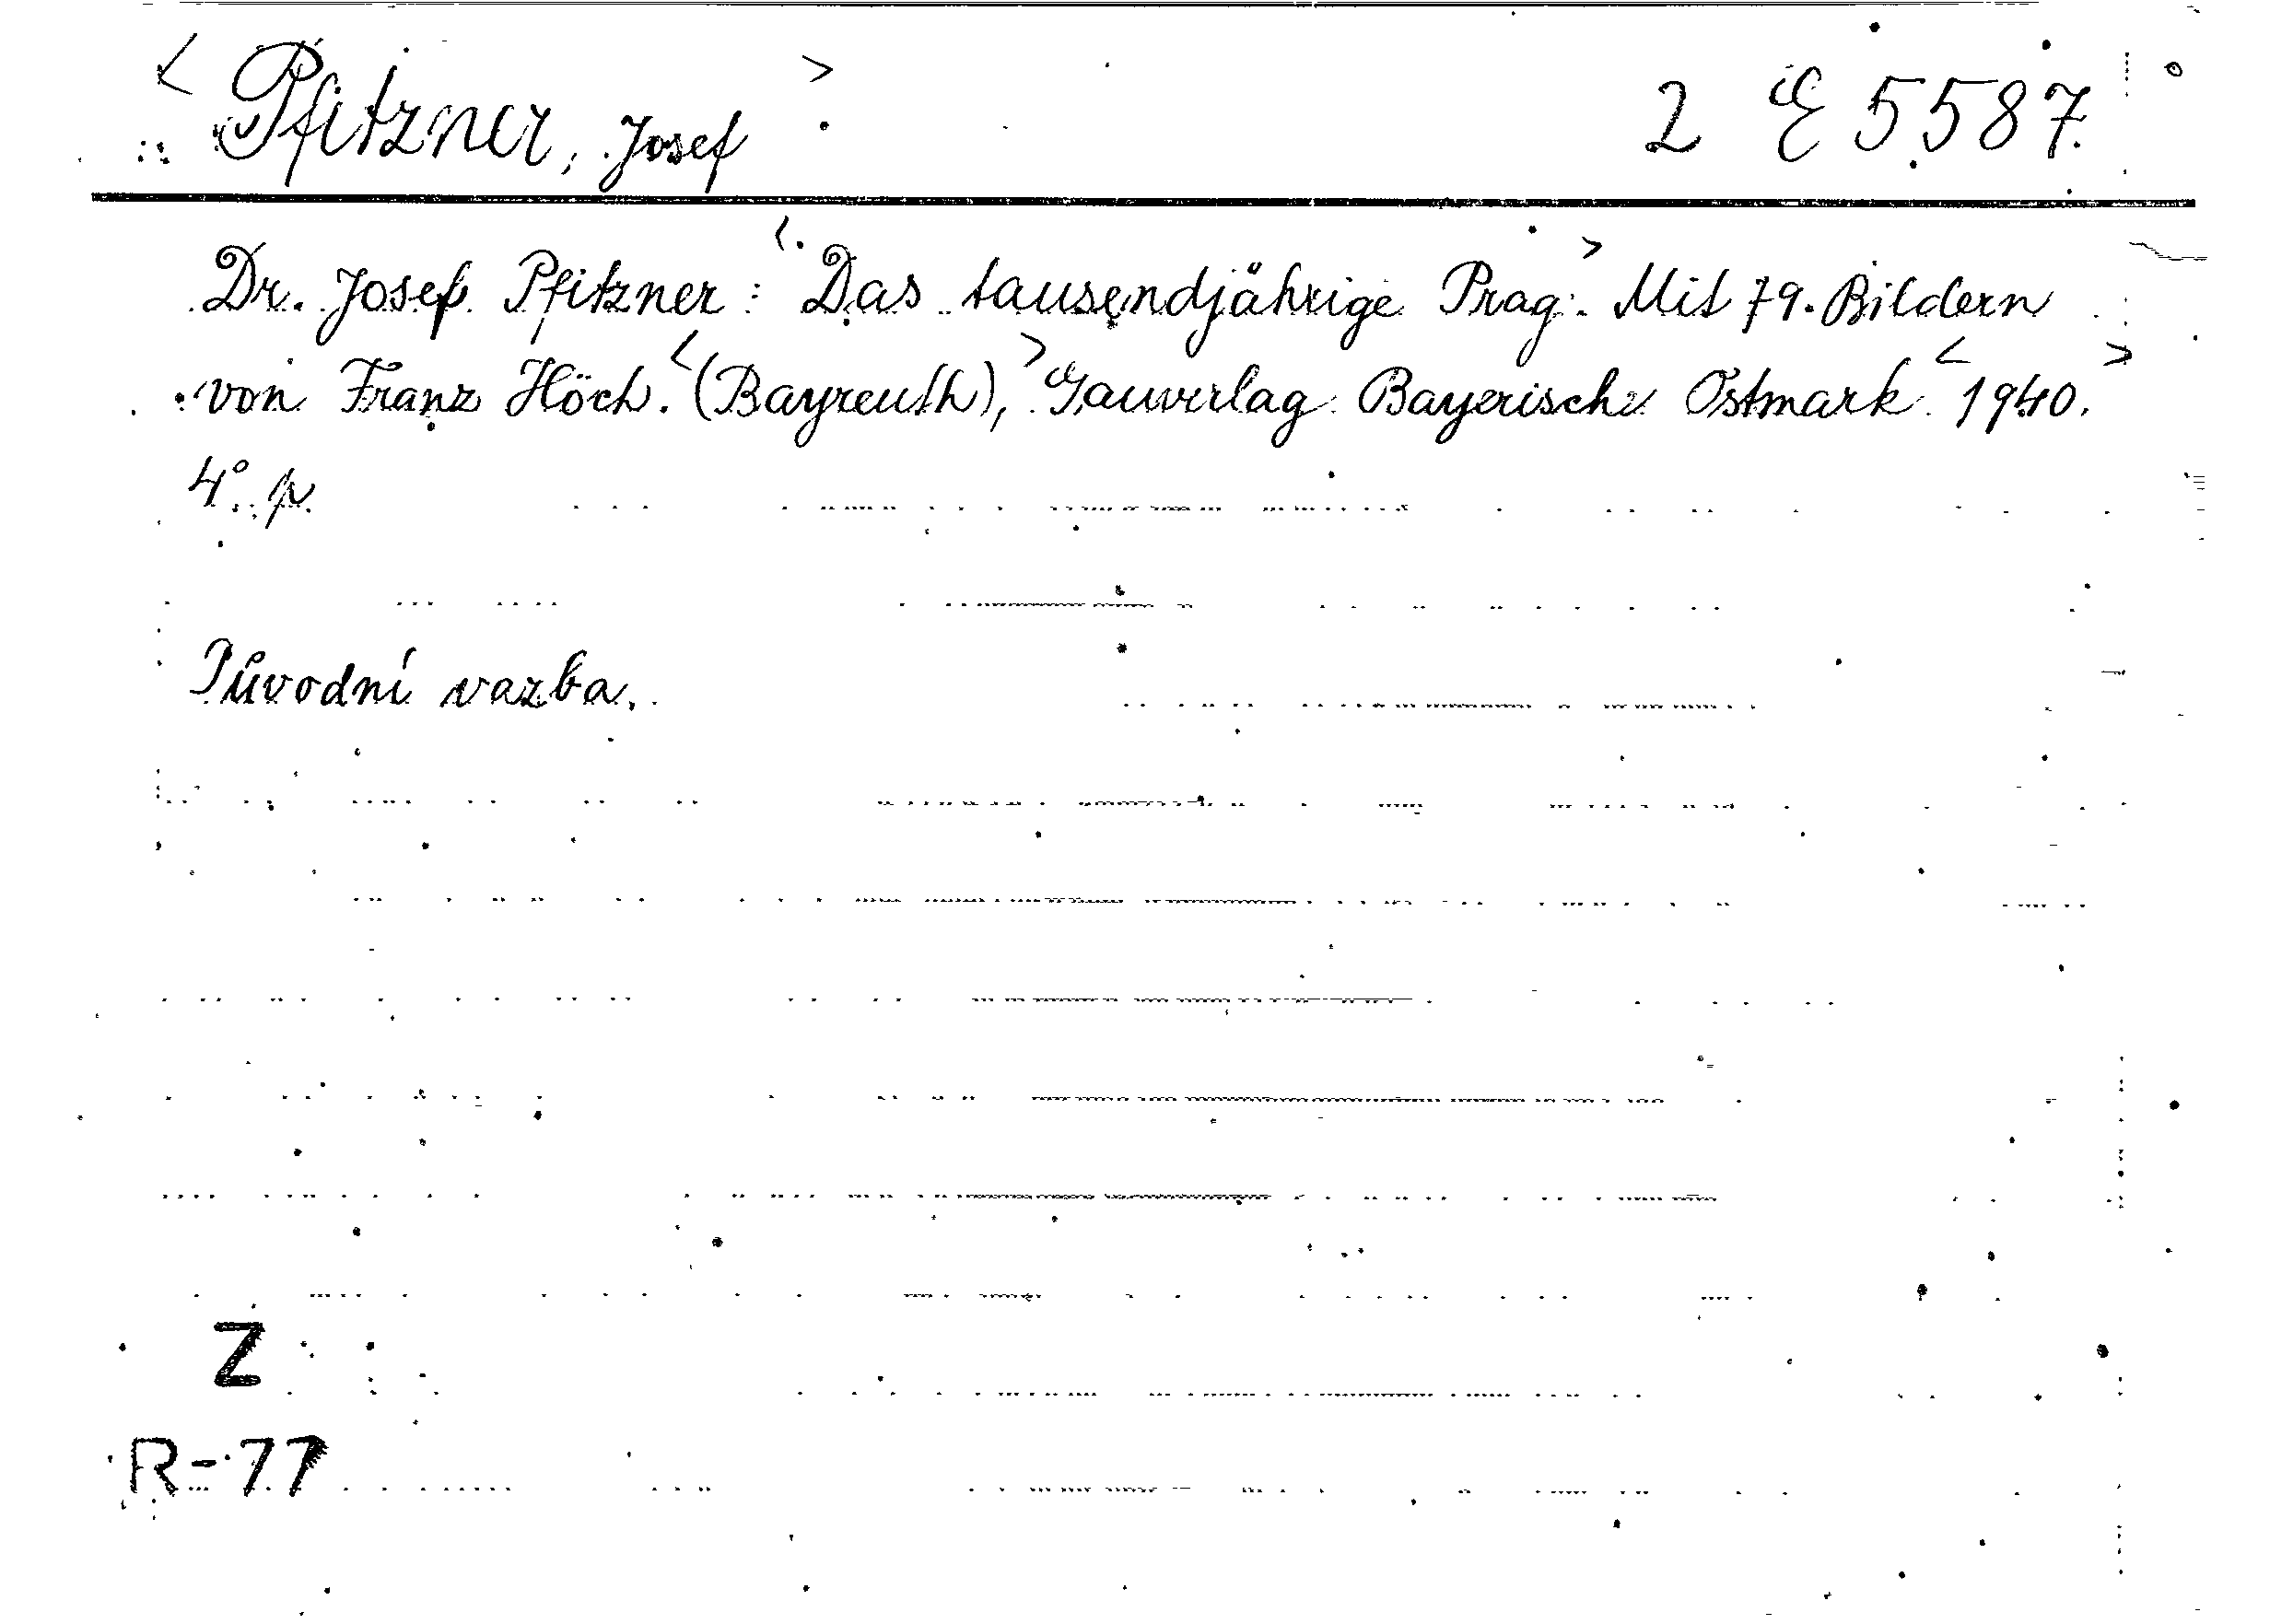 < Pfitzner, Josef > 2 E 5587.
Dr. Josef Pfitzner: <Das tausendjährige Prag.> Mit 79 Bildern
von Franz Höch. <(Bayreuth),> Gauverlag Bayerische Ostmark <1940.>
4°. p.
Původní vazba.
Z
R-77